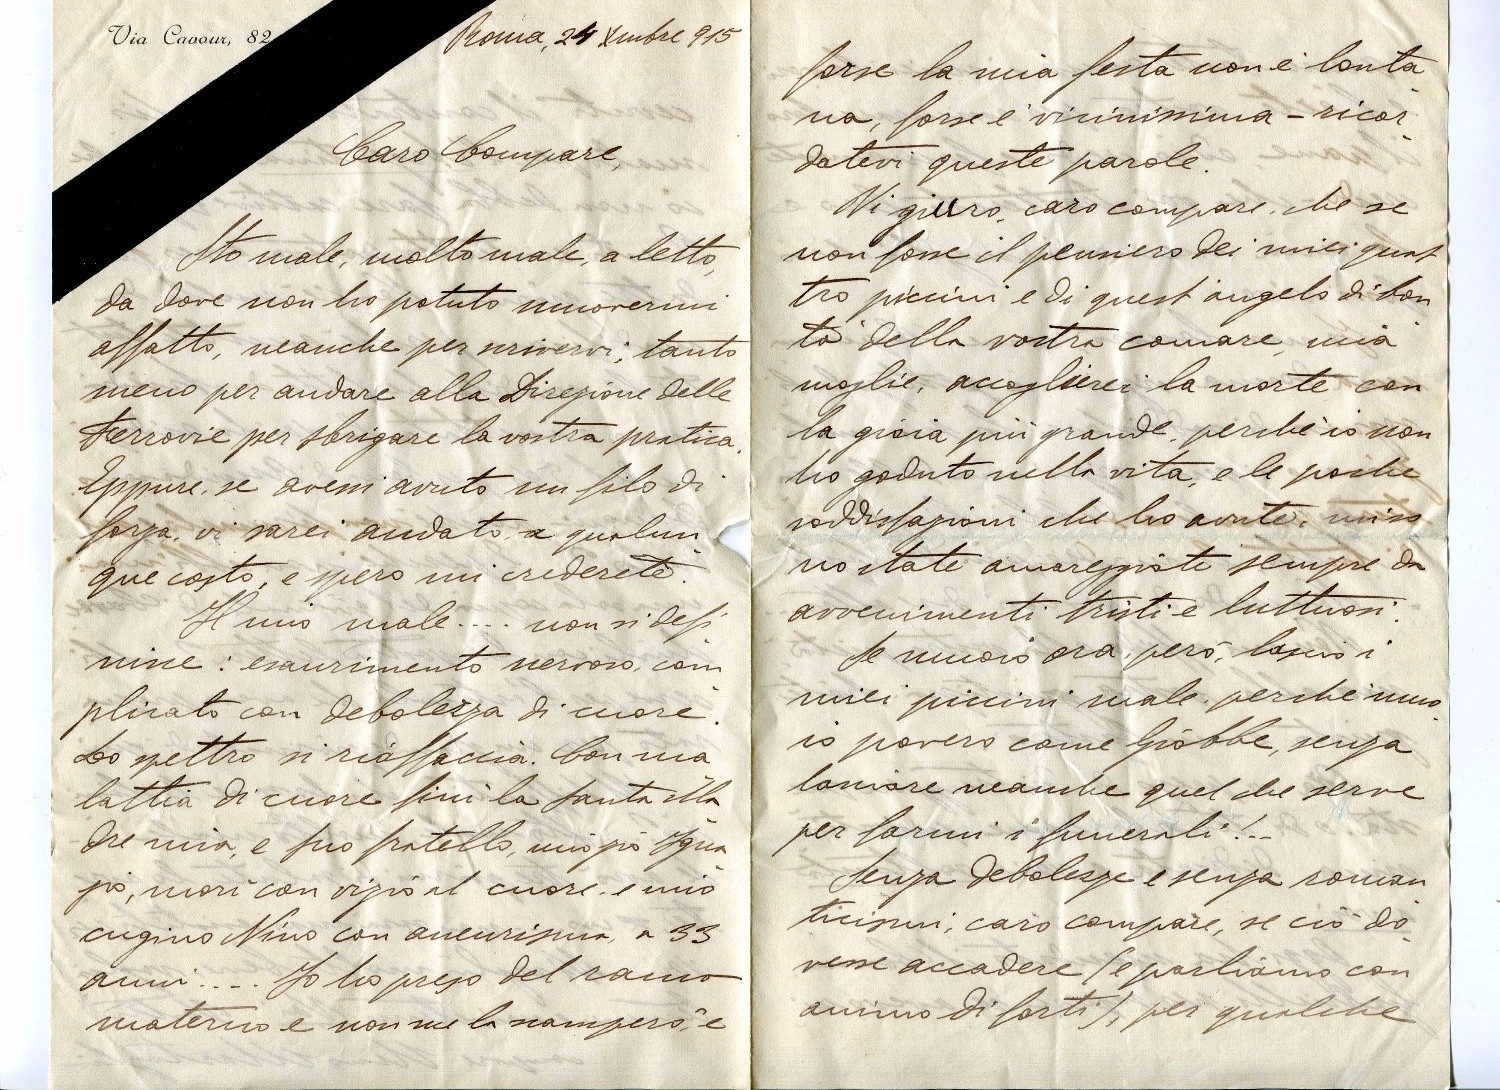 Via Cavour, 82
Roma, 24 Xmbre 915
Caro Compare,
Sto male, molto male, a letto,
da dove non ho potuto muovermi
affatto, neanche per scrivervi; tanto
meno per andare alla Direzione delle
Ferrovie per sbrigare la vostra pratica.
Eppure, se avessi avuto un filo di
forza, vi sarei andato, a qualun
que costo, e spero mi crederete.
Il mio male .... non si defi
nisce: esaurimento nervoso, com
plicato con debolezza di cuore.
Lo spettro si riaffaccia. Con ma
lattia di cuore finì la santa Ma
dre mia, e suo fratello, mio zio Igna
zio, morì con vizio al cuore e mio
cugino Nino con aneurisma, a 33
anni .... Io ho preso del ramo
materno e non me la scamperò, e
forse la mia festa non è lonta
na, forse è vicinissima - ricor
datevi queste parole.
Vi giuro, caro compare, che se
non fosse il pensiero dei miei quat
tro piccini e di quest'angelo di bon
tà della vostra comare, mia
moglie, accoglierei la morte con
la gioia più grande, perché io non
ho goduto nella vita, e le poche
soddisfazioni che ho avute, mi so
no state amareggiate sempre da
avvenimenti tristi e luttuosi.
Se muoio ora, però, lascio i
miei piccini male, perché muo
io povero come Giobbe, senza
lasciare neanche quel che serve
per farmi i funerali!..
Senza debolezze e senza roman
ticismi, caro compare, se ciò do
vesse accadere (e parliamo con
animo di forti), per qualche